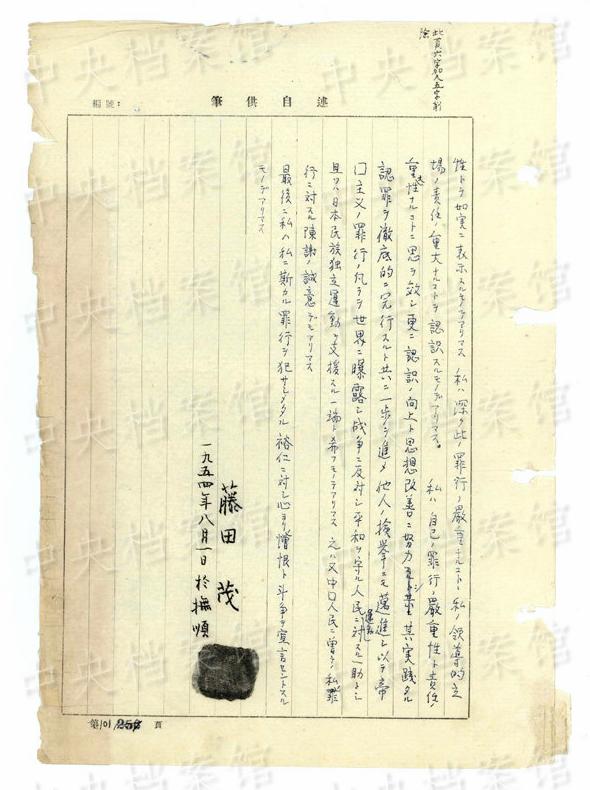 此頁六字加入五字削
除
編號：
筆供自述
性トヲ如実ニ表示スルモノデアリマス 私ハ深ク此ノ罪行ノ嚴重ナルコト、私ノ領導的立
場ノ責任ノ重大ナルコトヲ認識スルモノデアリマス。 私ハ自己ノ罪行ノ嚴重性ト責任ノ
重大性ナルコトニ思ヲ效シ更ニ認識ノ向上ト思想改善ニ努力シ其実践タル
認罪ヲ徹底的ニ完行スルト共ニ一歩ヲ進メ他人ノ検挙ニモ邁進シ以テ帝
口主义ノ罪行ノ凡テヲ世界ニ曝露シ战争ニ反対シ平和ヲ守ル人民運動ニ対スル一助トシ
且ツハ日本民族独立運動ヲ支援スル一端ト希フモノデアリマス 之ハ又中口人民ニ曽テノ私罪
行ニ対スル陳謝ノ誠意デモアリマス
最後ニ私ハ私ニ斯カル罪行ヲ犯サシメタル裕仁ニ対シ心ヨリ憎恨ト斗争ヲ宣言セントスル
モノデアリマス
藤田茂
一九五四年八月一日於撫順
第101/25頁
中央档案馆